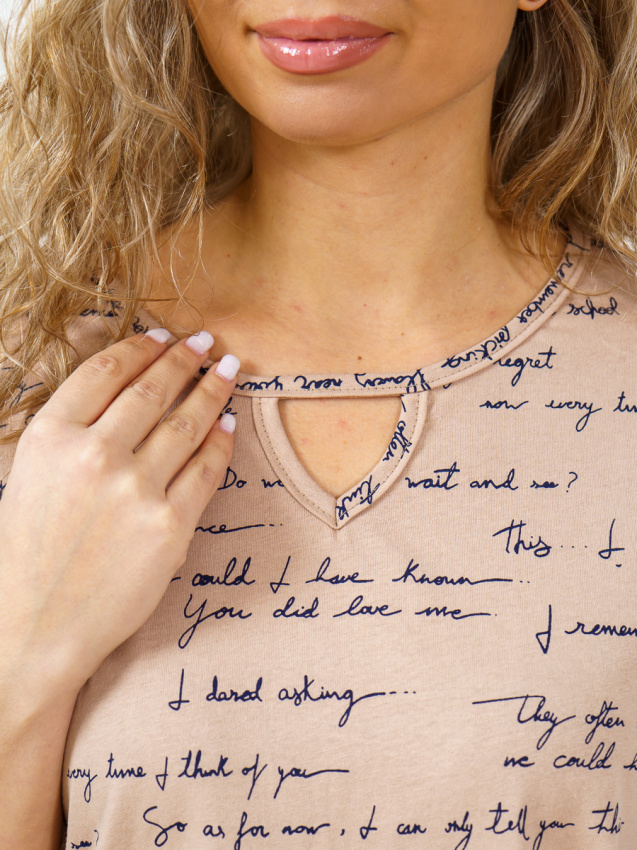 I remember picking
flowers near your
school
regret
now every
often
Do
wait and see?
This.... I
could I have known...
You did love me.
I
I dared asking...
They often
we could
every time I think of you
So as for now, I can only tell you